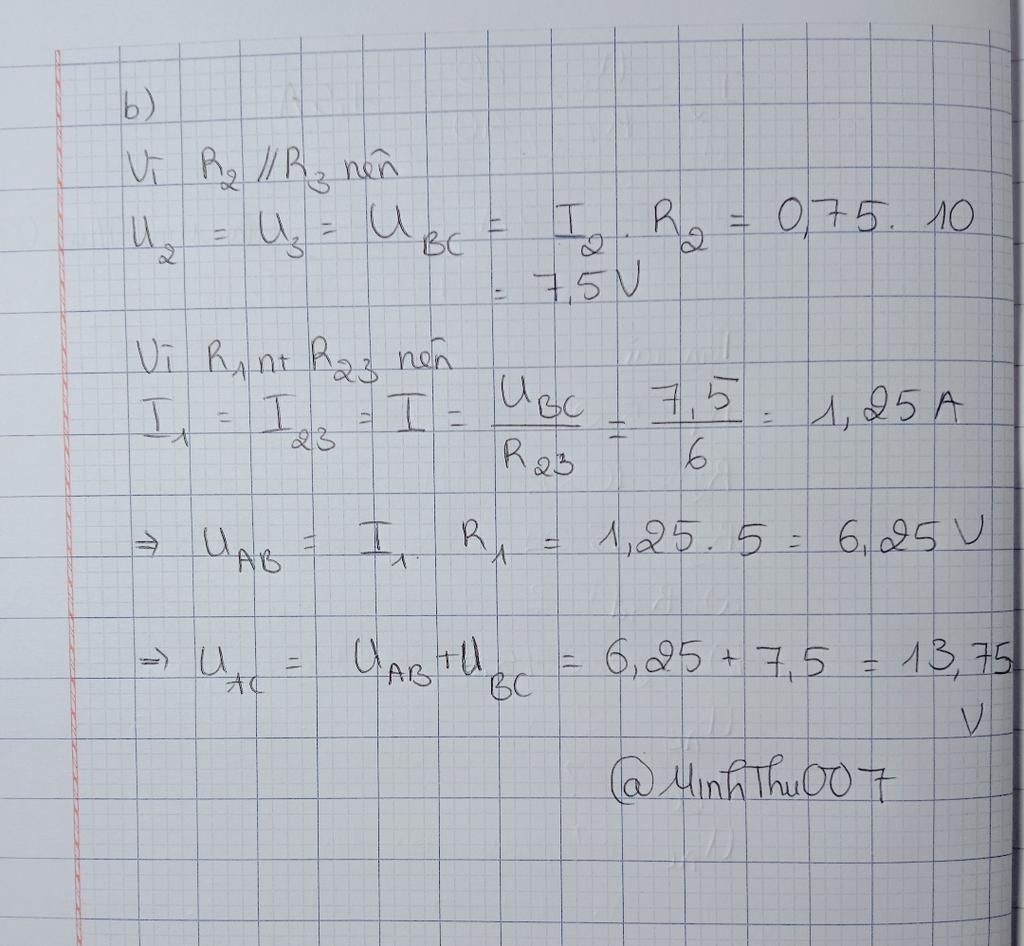 b)
Vì R2 // R3 nên
U2 = U3 = UBC = I2 . R2 = 0,75 . 10
= 7,5 V
Vì R1 nt R23 nên
I1 = I23 = I = UBC / R23 = 7,5 / 6 = 1,25 A
⇒ UAB = I1 . R1 = 1,25 . 5 = 6,25 V
⇒ UAC = UAB + UBC = 6,25 + 7,5 = 13,75
V
@MinhThu007